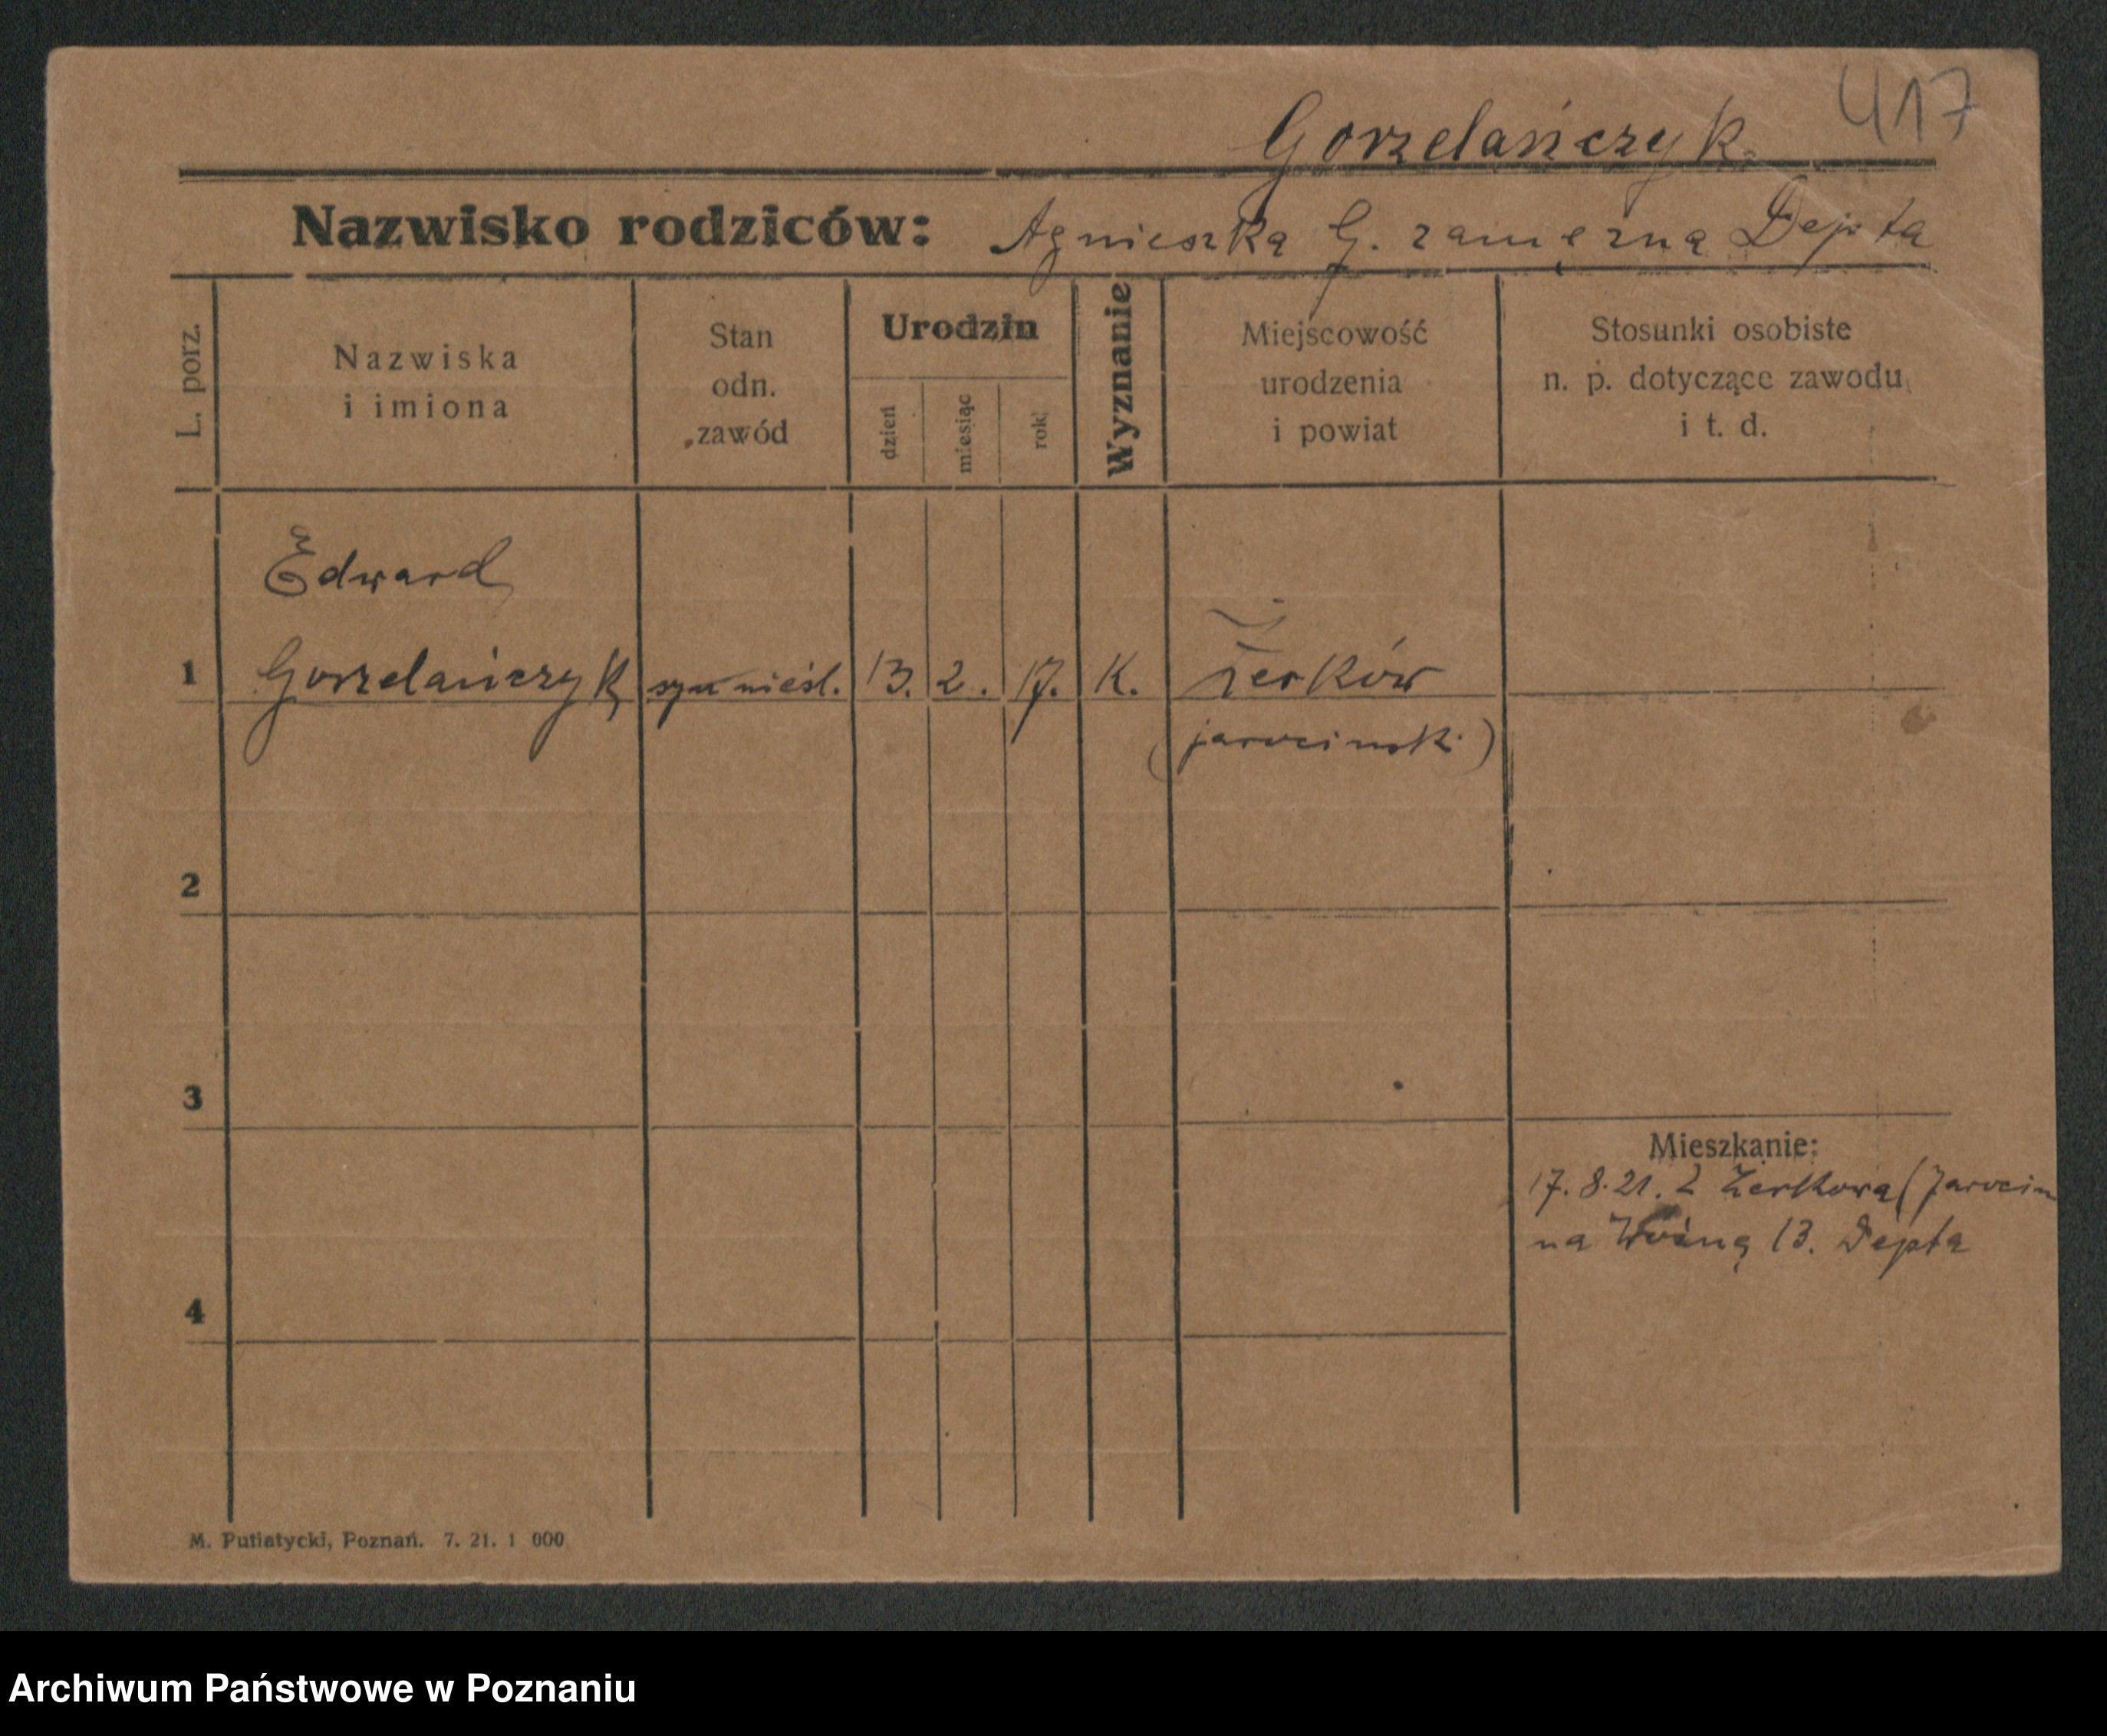 417
Gorzelańczyk
Nazwisko rodziców: Agnieszka G. zamężna Depta
L. porz.
Nazwiska
i imiona
Stan
odn.
zawód
Urodzin
dzień
miesiąc
rok
Wyznanie
Miejscowość
urodzenia
i powiat
Stosunki osobiste
n. p. dotyczące zawodu
i t. d.
Edward
1 Gorzelańczyk syn nieśl. 13. 2. 17. K. Żerków
(jarocinski)
2
3
Mieszkanie:
17. 8. 21. z Żerkowa (Jarocin
na Woźną 13. Depta
4
M. Putiatycki, Poznań. 7. 21. 1 000
Archiwum Państwowe w Poznaniu